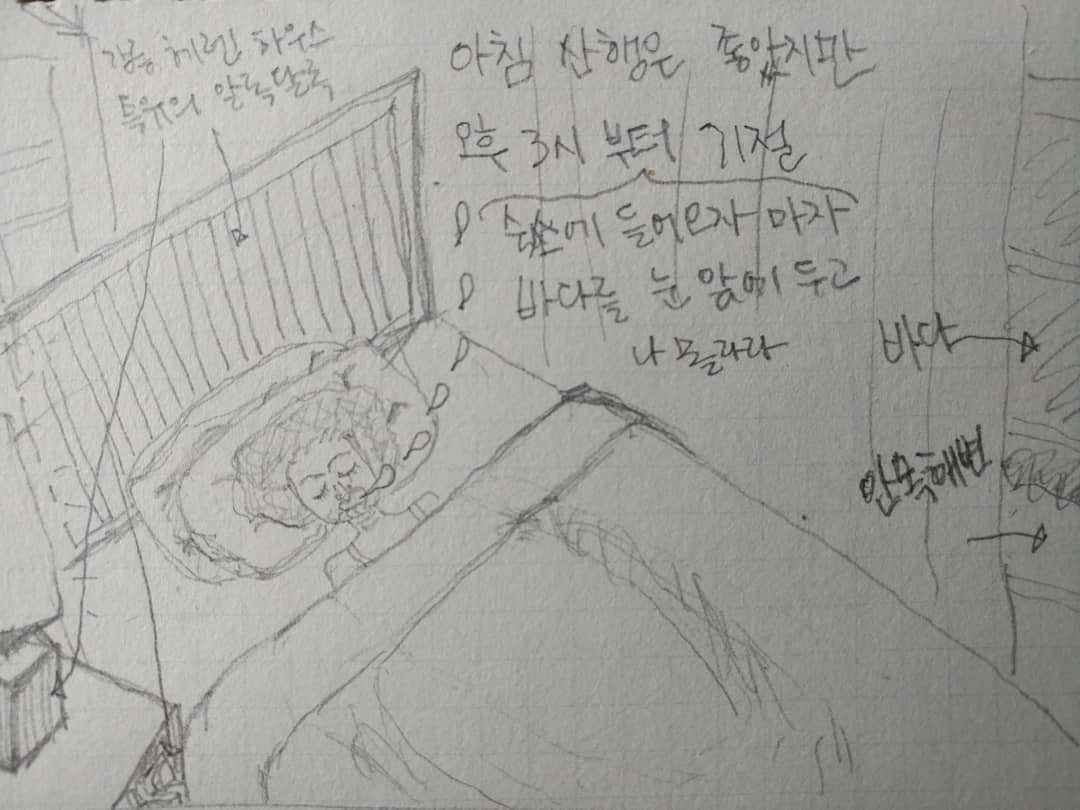 강릉 헤렌 하우스
특유의 알록달록
아침 산행은 좋았지만
오후 3시 부터 기절
숙소에 들어오자 마자
바다를 눈 앞에 두고
나 몰라라
바다
안목해변